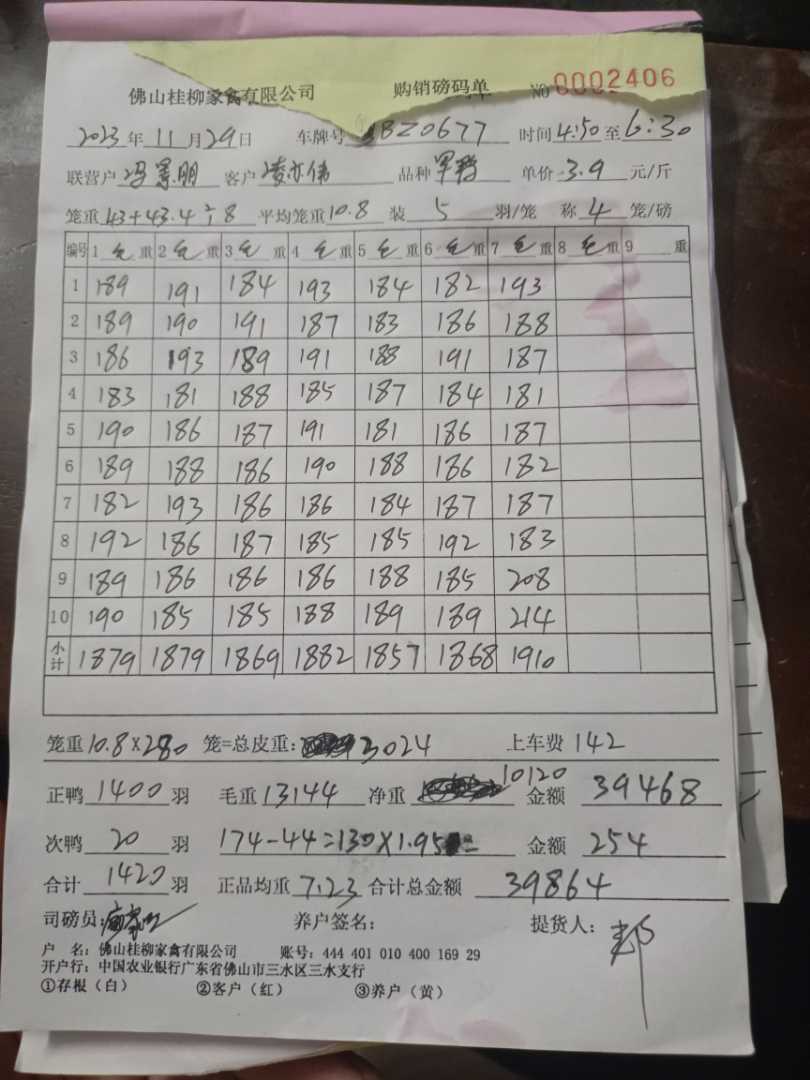 佛山桂柳家禽有限公司 购销磅码单 NO 0002406
2023年11月29日 车牌号 BZ0677 时间4:50至6:30
联营户 冯景明 客户 凌亦伟 品种 单价 3.9 元/斤
笼重43+43.4÷8 平均笼重10.8 装 5 羽/笼 称 4 笼/磅
编号 1 毛 重 2 毛 重 3 毛 重 4 毛 重 5 毛 重 6 毛 重 7 毛 重 8 毛 重 9 重
1 189 191 184 193 184 182 193
2 189 190 191 187 183 186 188
3 186 193 189 191 188 191 187
4 183 181 188 185 187 184 181
5 190 186 187 191 181 186 187
6 189 188 186 190 188 186 182
7 182 193 186 186 184 187 187
8 192 186 187 185 185 192 183
9 189 186 186 186 188 185 208
10 190 185 185 188 189 189 214
小计 1879 1879 1869 1882 1857 1868 1910
笼重10.8×280 笼=总皮重: 3024 上车费 142
正鸭 1400 羽 毛重 13144 净重 10120 金额 39468
次鸭 20 羽 174-44=130×1.95= 金额 254
合计 1420 羽 正品均重 7.23 合计总金额 39864
司磅员: 养户签名: 提货人:
户 名: 佛山桂柳家禽有限公司 账号: 444 401 010 400 169 29
开户行: 中国农业银行广东省佛山市三水区三水支行
①存根(白) ②客户(红) ③养户(黄)